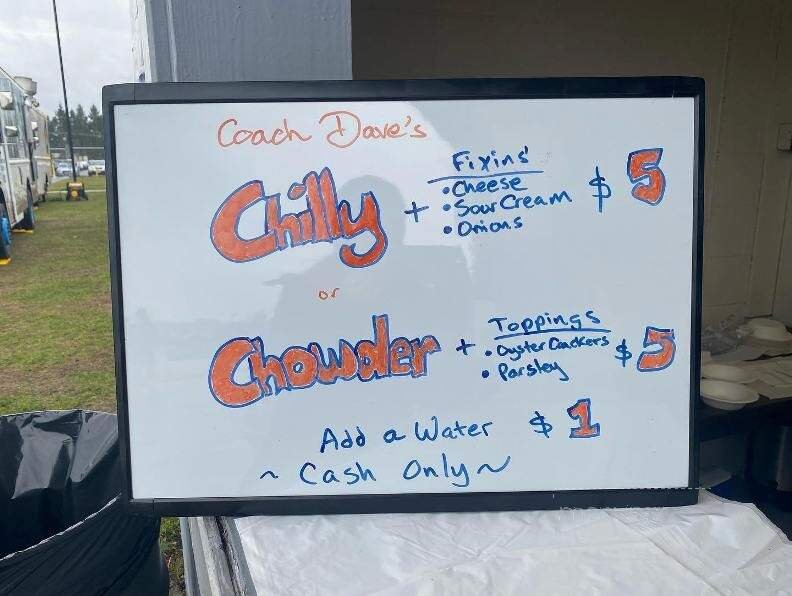 Coach Dave's
Chilly + Fixins' $5
• Cheese
• Sour Cream
• Onions
or
Chowder + Toppings $5
• Oyster Crackers
• Parsley
Add a Water $1
~ Cash Only ~